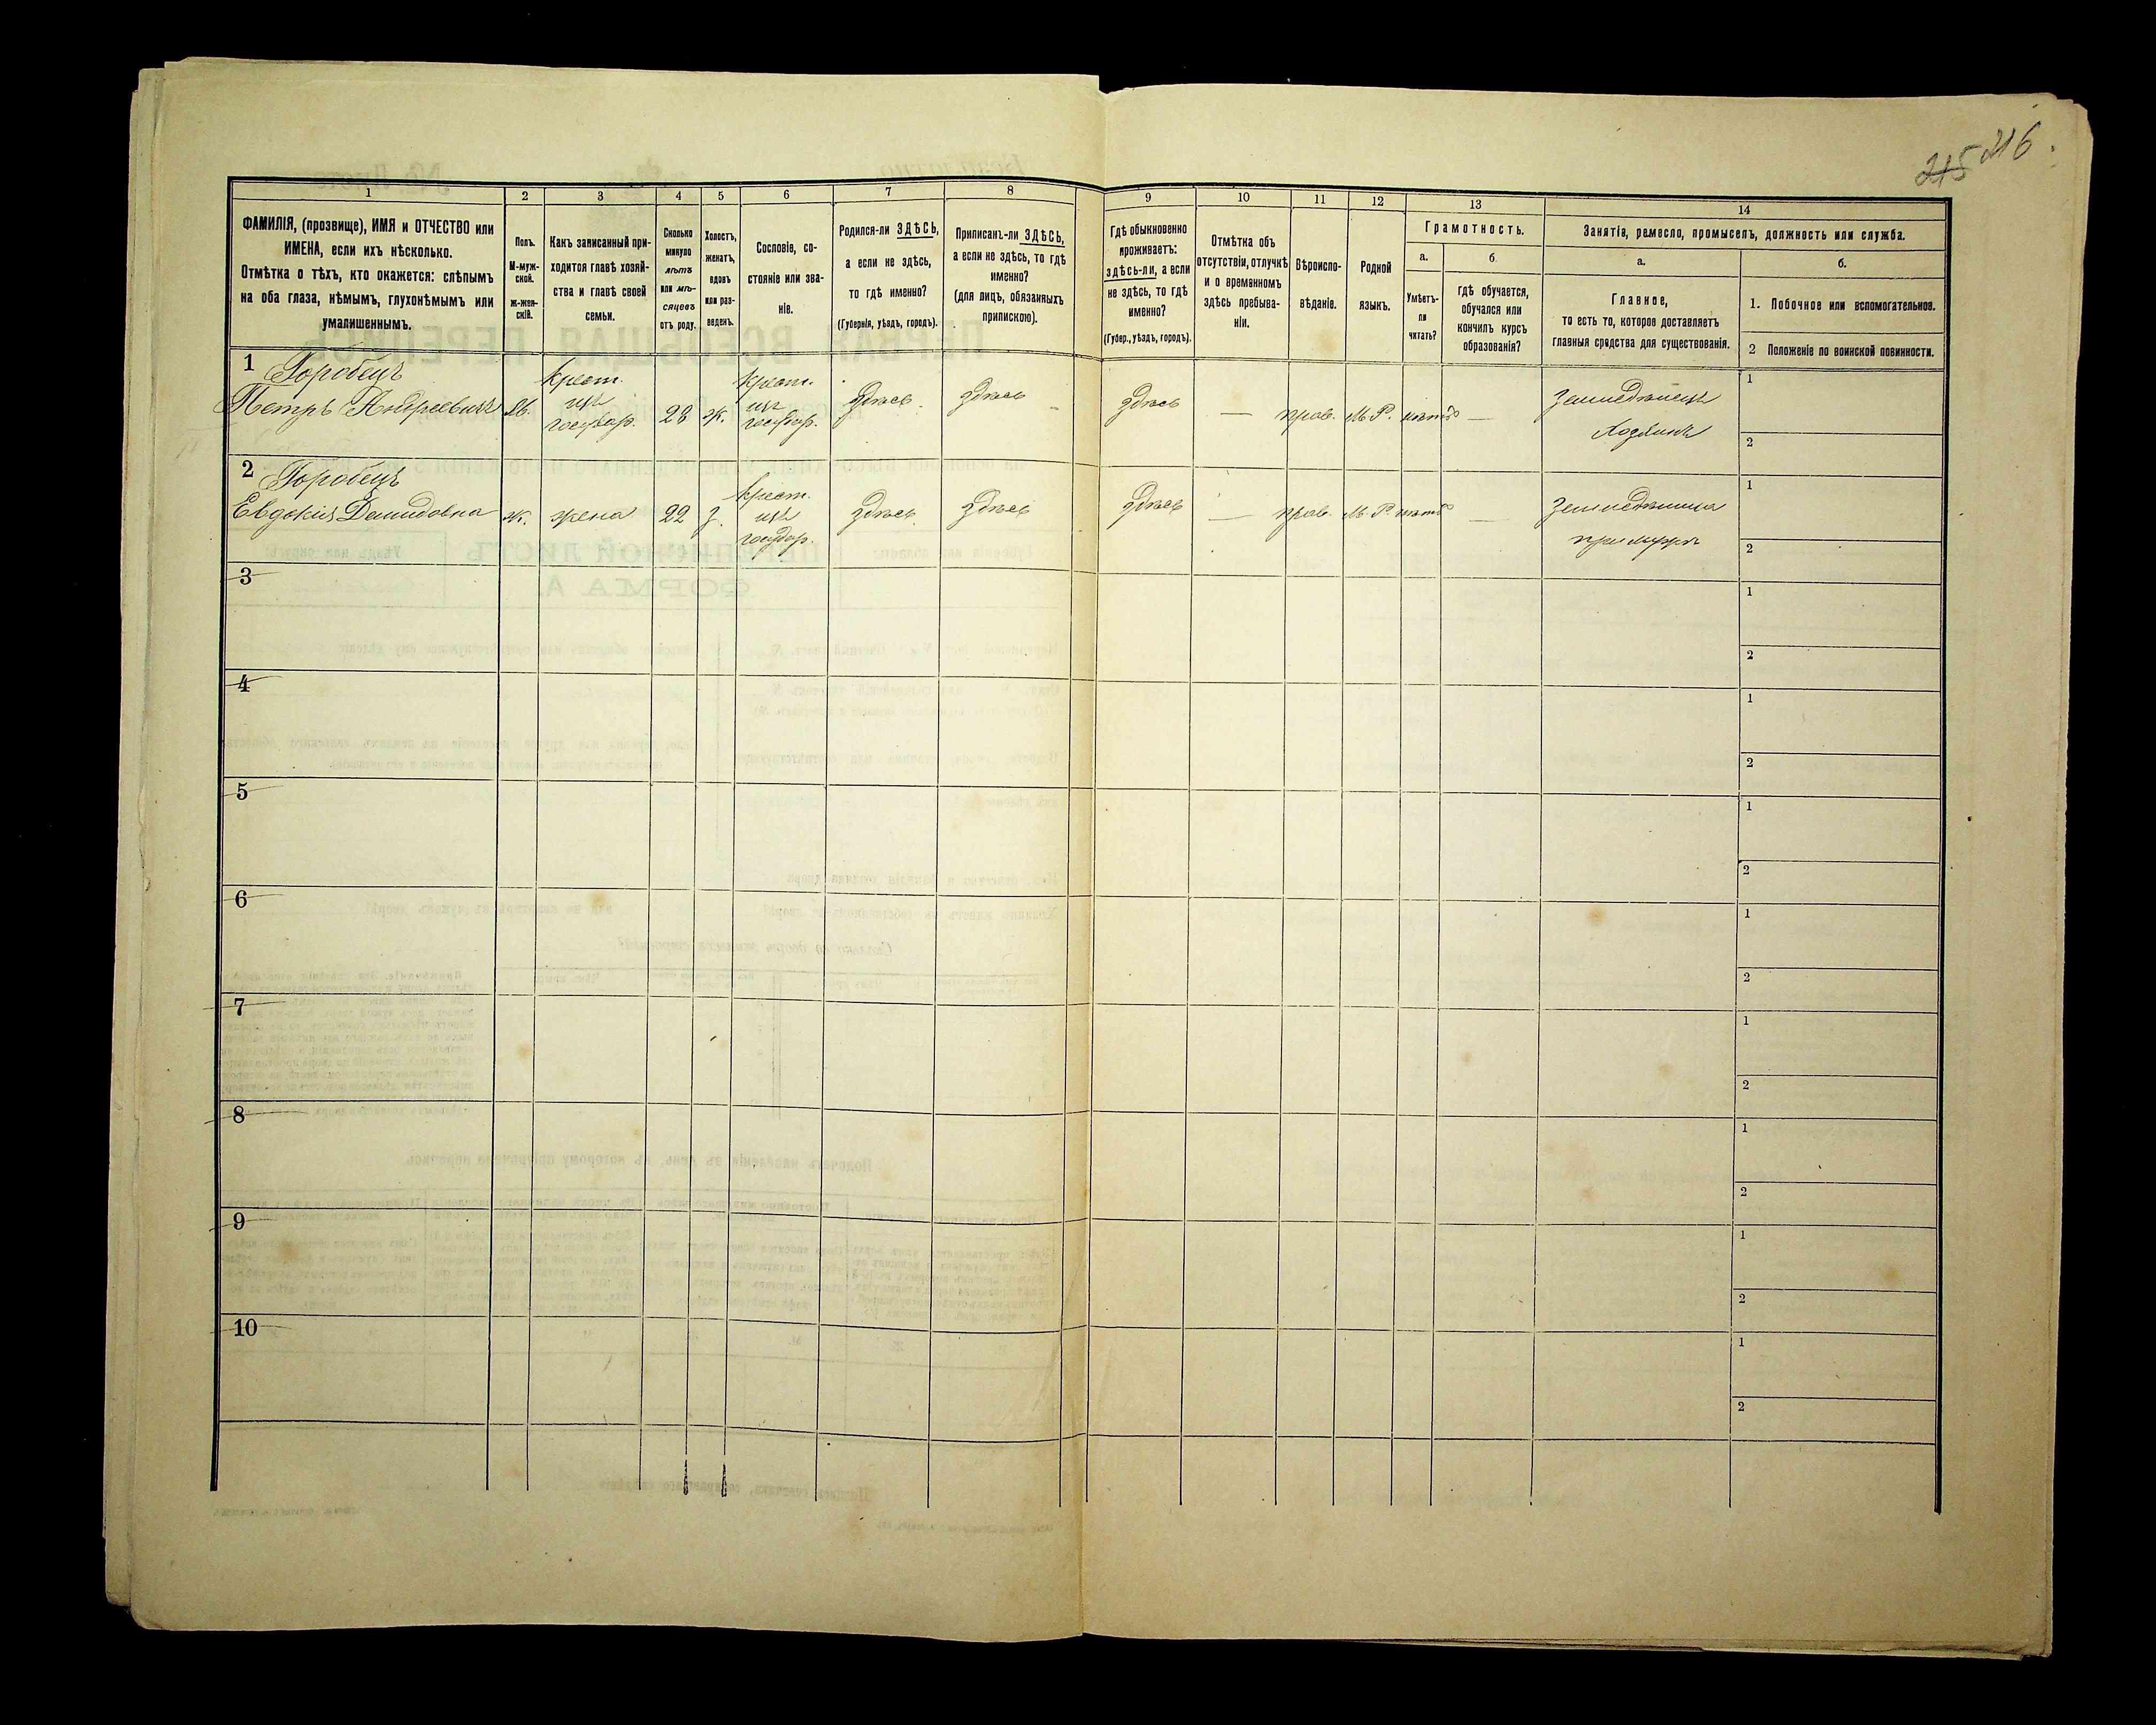 215 216.
1
2
3
4
5
6
7
8
9
10
11
12
13
14
ФАМИЛІЯ, (прозвище), ИМЯ и ОТЧЕСТВО или
ИМЕНА, если ихъ нѣсколько.
Отмѣтка о тѣхъ, кто окажется: слѣпымъ
на оба глаза, нѣмымъ, глухонѣмымъ или
умалишеннымъ.
Полъ.
М-муж-
ской.
ж-жен-
скій.
Какъ записанный при-
ходится главѣ хозяй-
ства и главѣ своей
семьи.
Сколько
минуло
лѣтъ
или мѣ-
сяцевъ
отъ роду.
Холостъ,
женатъ,
вдовъ
или раз-
веденъ.
Сословіе, со-
стояніе или зва-
ніе.
Родился-ли ЗДѢСЬ,
а если не здѣсь,
то гдѣ именно?
(Губернія, уѣздъ, городъ).
Приписанъ-ли ЗДѢСЬ,
а если не здѣсь, то гдѣ
именно?
(для лицъ, обязанныхъ
припискою).
Гдѣ обыкновенно
проживаетъ:
здѣсь-ли, а если
не здѣсь, то гдѣ
именно?
(Губер., уѣздъ, городъ).
Отмѣтка объ
отсутствіи, отлучкѣ
и о временномъ
здѣсь пребыва-
ніи.
Вѣроиспо-
вѣданіе.
Родной
языкъ.
Грамотность.
а.
Умѣетъ-
ли
читать?
б.
гдѣ обучается,
обучался или
кончилъ курсъ
образованія?
Занятіе, ремесло, промыселъ, должность или служба.
а.
Главное,
то есть то, которое доставляетъ
главныя средства для существованія.
б.
1. Побочное или вспомогательное.
2 Положеніе по воинской повинности.
1 Горобецъ
Петръ Андреевичъ
М.
крест.
изъ
государ.
23
ж.
крест.
изъ
государ.
здѣсь
здѣсь –
здѣсь
—
прав.
М. Р.
нѣтъ
—
Земледѣлецъ
Хозяинъ
1
2
2 Горобецъ
Евдокія Демидовна
ж.
жена
22
З.
крест.
изъ
государ.
здѣсь
здѣсь
здѣсь
—
прав.
М. Р.
нѣтъ
—
Земледѣлица
при мужѣ
1
2
3
1
2
4
1
2
5
1
2
6
1
2
7
1
2
8
1
2
9
1
2
10
1
2